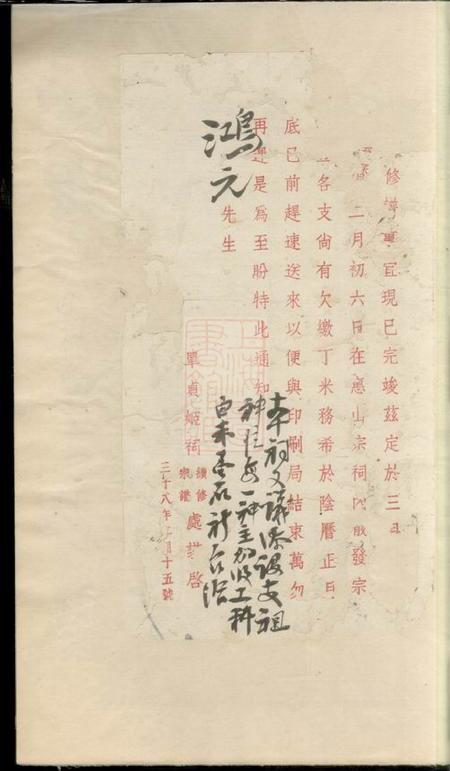 修譜事宜現已完竣茲定於三日
二月初六日在惠山宗祠內散發宗
各支尙有欠繳丁米務希於陰曆正月
底已前趕速送來以便與印刷局結束萬勿
再遲是爲至盼特此通知
鴻元
先生
本祠又議添設支祖
神位每一神主加收工料
白米壹石
貞姬祠
續修
宗鑑
處謹啓
三十八年 月十五號
上海
書館